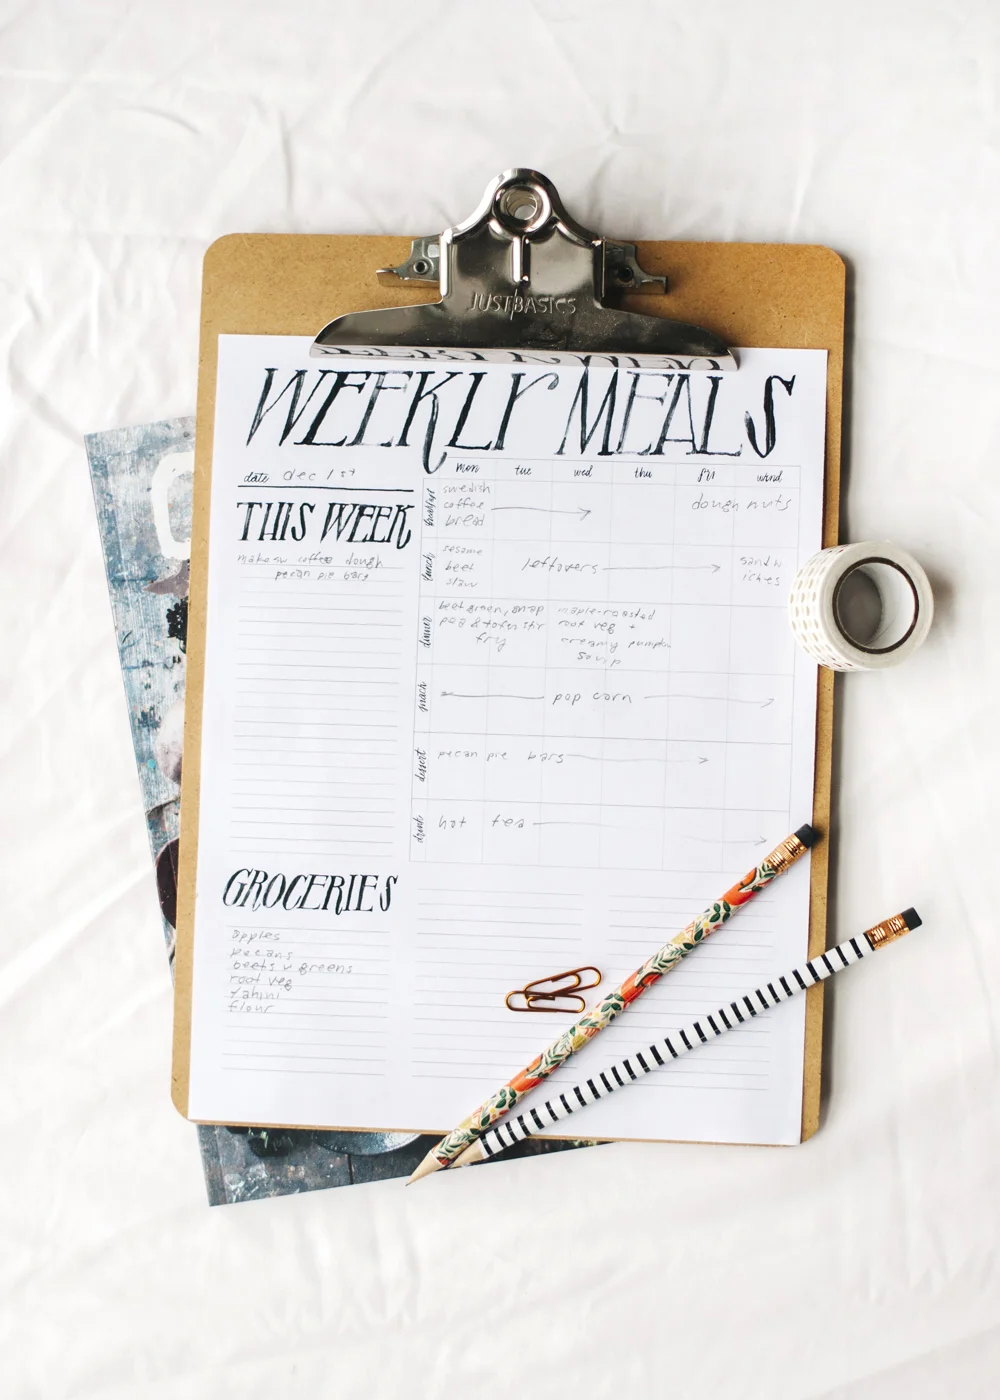 JUST BASICS
WEEKLY MEALS
WEEKLY MEALS
date dec 1st
THIS WEEK
make sw coffee dough
pecan pie bars
mon tue wed thu fri wknd
breakfast
swedish
coffee
bread
dough nuts
lunch
sesame
beet
slaw
leftovers
sandw
iches
dinner
beet green, snap
pea & tofu stir
fry
maple-roasted
root veg +
creamy pumpkin
soup
snack
pop corn
dessert
pecan pie bars
drink
hot tea
GROCERIES
apples
pecans
beets w greens
root veg
tahini
flour